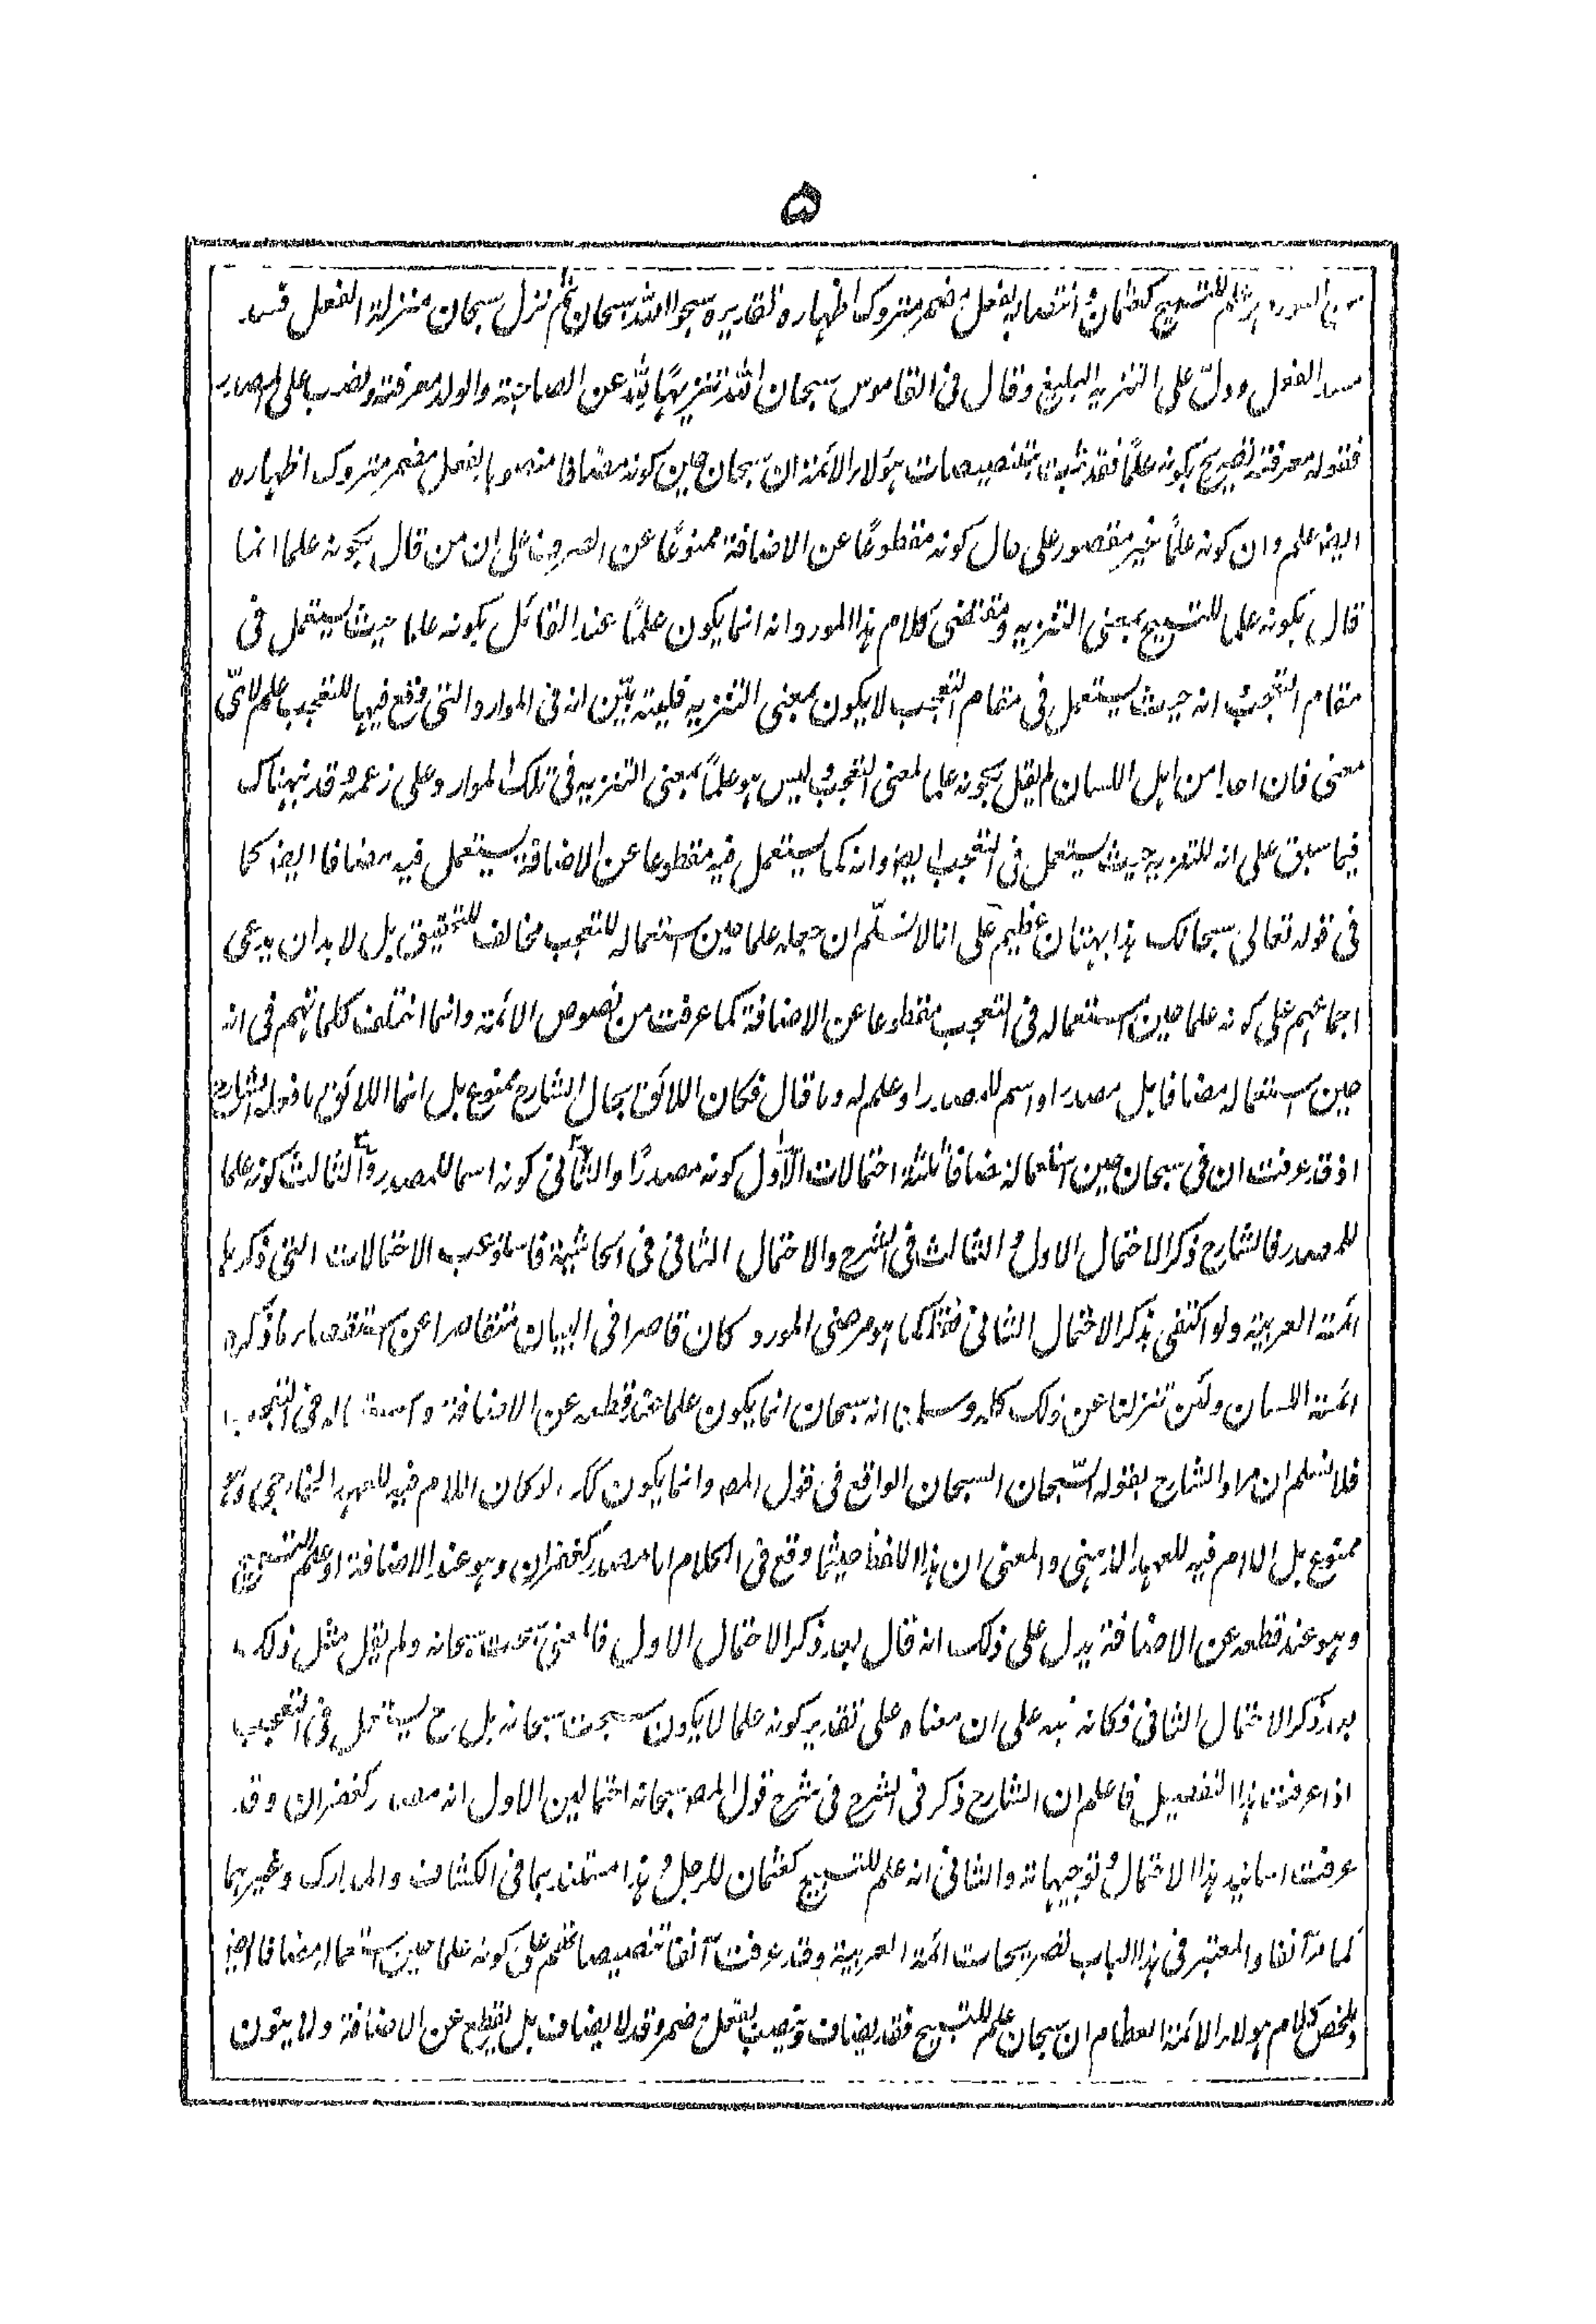 ۵
علم للتسبيح كعثمان وانتصابه بفعل مضمر متروك اظهاره تقديره سبحوا الله سبحان ثم نزل سبحان منزلة الفعل فسد
مسد الفعل ودلّ على التنزيه البليغ وقال فى القاموس سبحان الله تنزيهًا لله عن الصاحبة والولد معرفة ونصب على المصدر
فقوله معرفة تصريح بكونه علمًا فقد ثبت بتنصيصات هؤلاء الائمة ان سبحان حين كونه مضافا منصوبا بفعل مضمر متروك اظهاره
ايضا علم وان كونه علمًا غير مقصور على حال كونه مقطوعًا عن الاضافة ممنوعًا عن الصرف على ان من قال بكونه علما انما
قال بكونه علما للتسبيح بمعنى التنزيه ومقتضى كلام هذا المورد انه انما يكون علمًا عند القائل بكونه علما حيث يستعمل فى
مقام التعجب انه حيث يستعمل فى مقام التعجب لا يكون بمعنى التنزيه فليته بيّن انه فى الموارد التى وقع فيها للتعجب علم لاىّ
معنى فان احدا من اهل اللسان لم يقل بكونه علما لمعنى التعجب وليس هو علمًا بمعنى التنزيه فى تلك الموارد على زعمه وقد نبهناك
فيما سبق على انه للتنزيه حيث يستعمل فى التعجب ايضا وانه كما يستعمل فيه مقطوعا عن الاضافة يستعمل فيه مضافا ايضا كما
فى قوله تعالى سبحانك هذا بهتان عظيم على انا لا نسلّم ان جعله علما حين استعماله للتعجب مخالف للتحقيق بل لا بد ان يدعى
اجماعهم على كونه علما حين استعماله فى التعجب مقطوعا عن الاضافة كما عرفت من نصوص الائمة وانما اختلفت كلماتهم فى انه
حين استعماله مضافا هل مصدر او اسم للمصدر او علم له وما قال فكان اللائق بحال الشارح ممنوع بل انما اللائق ما فعله الشارح
اذ قد عرفت ان فى سبحان حين استعماله مضافا ثلثة احتمالات الاول كونه مصدرًا والثانى كونه اسما للمصدر والثالث كونه علما
للمصدر فالشارح ذكر الاحتمال الاول والثالث فى الشرح والاحتمال الثانى فى الحاشية فاستوعب الاحتمالات التى ذكرها
ائمة العربية ولو اكتفى بذكر الاحتمال الثانى فقط كما هو مرضى المورد كان قاصرا فى البيان متقاصرا عن استقصاء ما ذكره
ائمة اللسان ولئن تنزلنا عن ذلك كله وسلمنا انه سبحان انما يكون علما عند قطعه عن الاضافة واستعماله فى التعجب
فلا نسلم ان مراد الشارح بقوله السبحان السبحان الواقع فى قول المصـ وانما يكون كك لو كان اللام فيه للعهد الخارجى وهو
ممنوع بل اللام فيه للعهد الذهنى والمعنى ان هذا اللفظ حيثما وقع فى الكلام اما مصدر كغفران وهو عند الاضافة او علم للتسبيح
وهو عند قطعه عن الاضافة يدل على ذلك انه قال بعد ذكر الاحتمال الاول فالمعنى سبحت سبحانه ولم يقل مثل ذلك
بعد ذكر الاحتمال الثانى فكانه نبه على ان معناه على تقدير كونه علما لا يكون سبحت سبحانه بل ح يستعمل فى التعجب
اذا عرفت هذا التفصيل فاعلم ان الشارح ذكر فى الشرح فى شرح قول المصـ سبحانه احتمالين الاول انه مصدر كغفران وقد
عرفت اسانيد هذا الاحتمال وتوجيهاته والثانى انه علم للتسبيح كعثمان للرجل وهذا مستند بما فى الكشاف والمدارك وغيرهما
كما مر آنفا والمعتبر فى هذا الباب تصريحات ائمة العربية وقد عرفت آنفا تنصيصاتهم على كونه علما حين استعماله مضافا ايضا
وملخص كلام هؤلاء الائمة العظام ان سبحان علم للتسبيح فقد يضاف وينصب بفعل مضمر وقد لا يضاف بل يقطع عن الاضافة ولا ينون